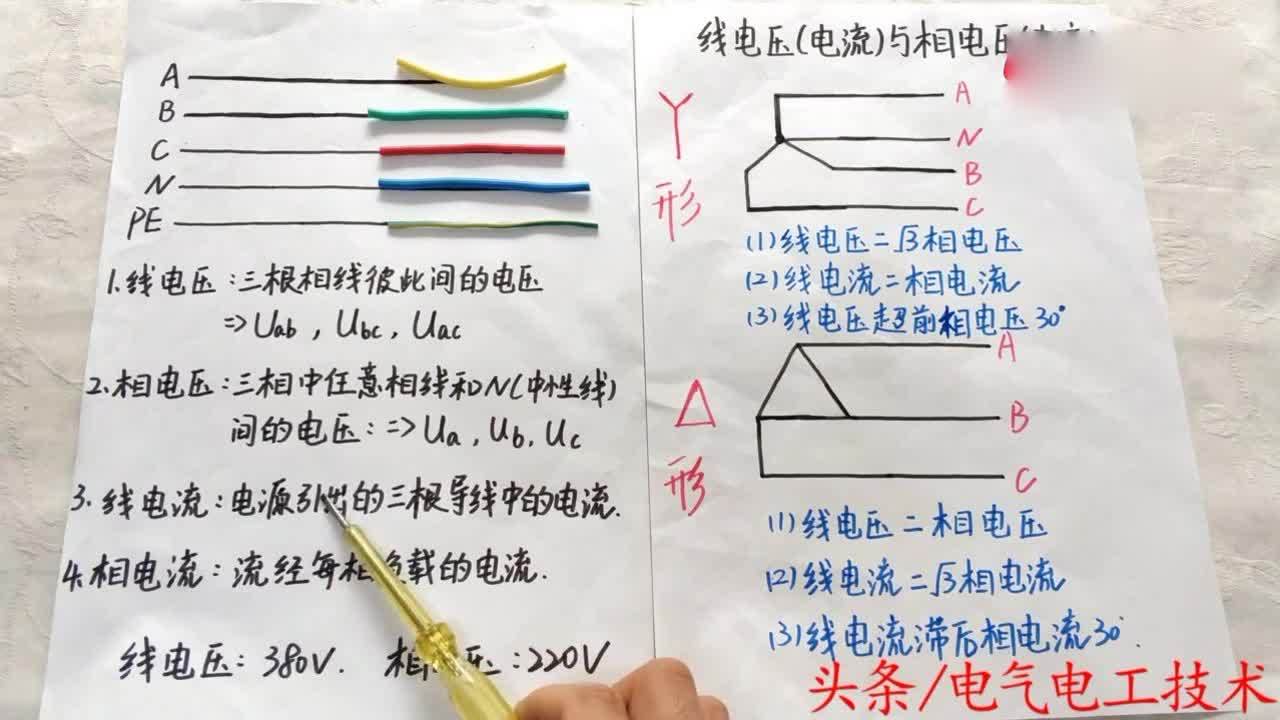 A
B
C
N
PE
1.线电压:三根相线彼此间的电压
=>Uab,Ubc,Uac
2.相电压:三相中任意相线和N(中性线)
间的电压:=>Ua,Ub,Uc
3.线电流:电源引出的三根导线中的电流.
4.相电流:流经每相负载的电流.
线电压:380V. 相 压:220V
线电压(电流)与相电压
Y
形
A
N
B
C
(1)线电压=√3相电压
(2)线电流=相电流
(3)线电压超前相电压30°
△
形
A
B
C
(1)线电压=相电压
(2)线电流=√3相电流
(3)线电流滞后相电流30°
头条/电气电工技术